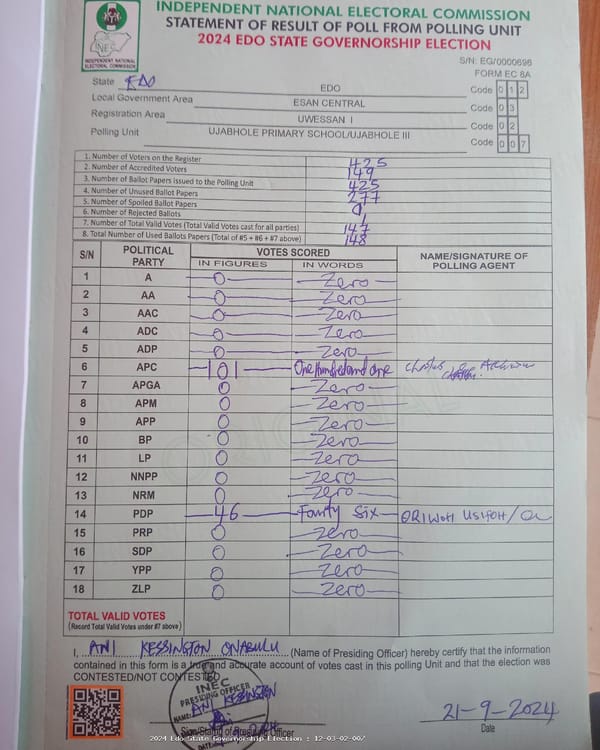 INDEPENDENT NATIONAL ELECTORAL COMMISSION
STATEMENT OF RESULT OF POLL FROM POLLING UNIT
2024 EDO STATE GOVERNORSHIP ELECTION
INEC
INDEPENDENT NATIONAL
ELECTORAL COMMISSION
S/N: EG/0000698
FORM EC 8A
State EDO EDO Code 0 1 2
Local Government Area ESAN CENTRAL Code 0 3
Registration Area UWESSAN I Code 0 2
Polling Unit UJABHOLE PRIMARY SCHOOL/UJABHOLE III Code 0 0 7
1. Number of Voters on the Register 425
2. Number of Accredited Voters 149
3. Number of Ballot Papers issued to the Polling Unit 425
4. Number of Unused Ballot Papers 277
5. Number of Spoiled Ballot Papers
6. Number of Rejected Ballots 1
7. Number of Total Valid Votes (Total Valid Votes cast for all parties) 147
8. Total Number of Used Ballots Papers (Total of #5 + #6 + #7 above) 148
S/N POLITICAL PARTY VOTES SCORED NAME/SIGNATURE OF POLLING AGENT
IN FIGURES IN WORDS
1 A 0 Zero
2 AA 0 Zero
3 AAC 0 Zero
4 ADC 0 Zero
5 ADP 0 Zero
6 APC 101 One hundred and one
7 APGA 0 Zero
8 APM 0 Zero
9 APP 0 Zero
10 BP 0 Zero
11 LP 0 Zero
12 NNPP 0 Zero
13 NRM 0 Zero
14 PDP 46 Fourty Six ORIWOH USIHOH
15 PRP 0 Zero
16 SDP 0 Zero
17 YPP 0 Zero
18 ZLP 0 Zero
TOTAL VALID VOTES
(Record Total Valid Votes under #7 above)
I, ANI KESSINGTON ONABULU (Name of Presiding Officer) hereby certify that the information
contained in this form is a true and accurate account of votes cast in this polling Unit and that the election was
CONTESTED/NOT CONTESTED
INEC
PRESIDING OFFICER
NAME: ANI KESSINGTON
Sign/Stamp of Presiding Officer
DATE
21-9-2024
Date
2024 Edo State Governorship Election : 12-03-02-007